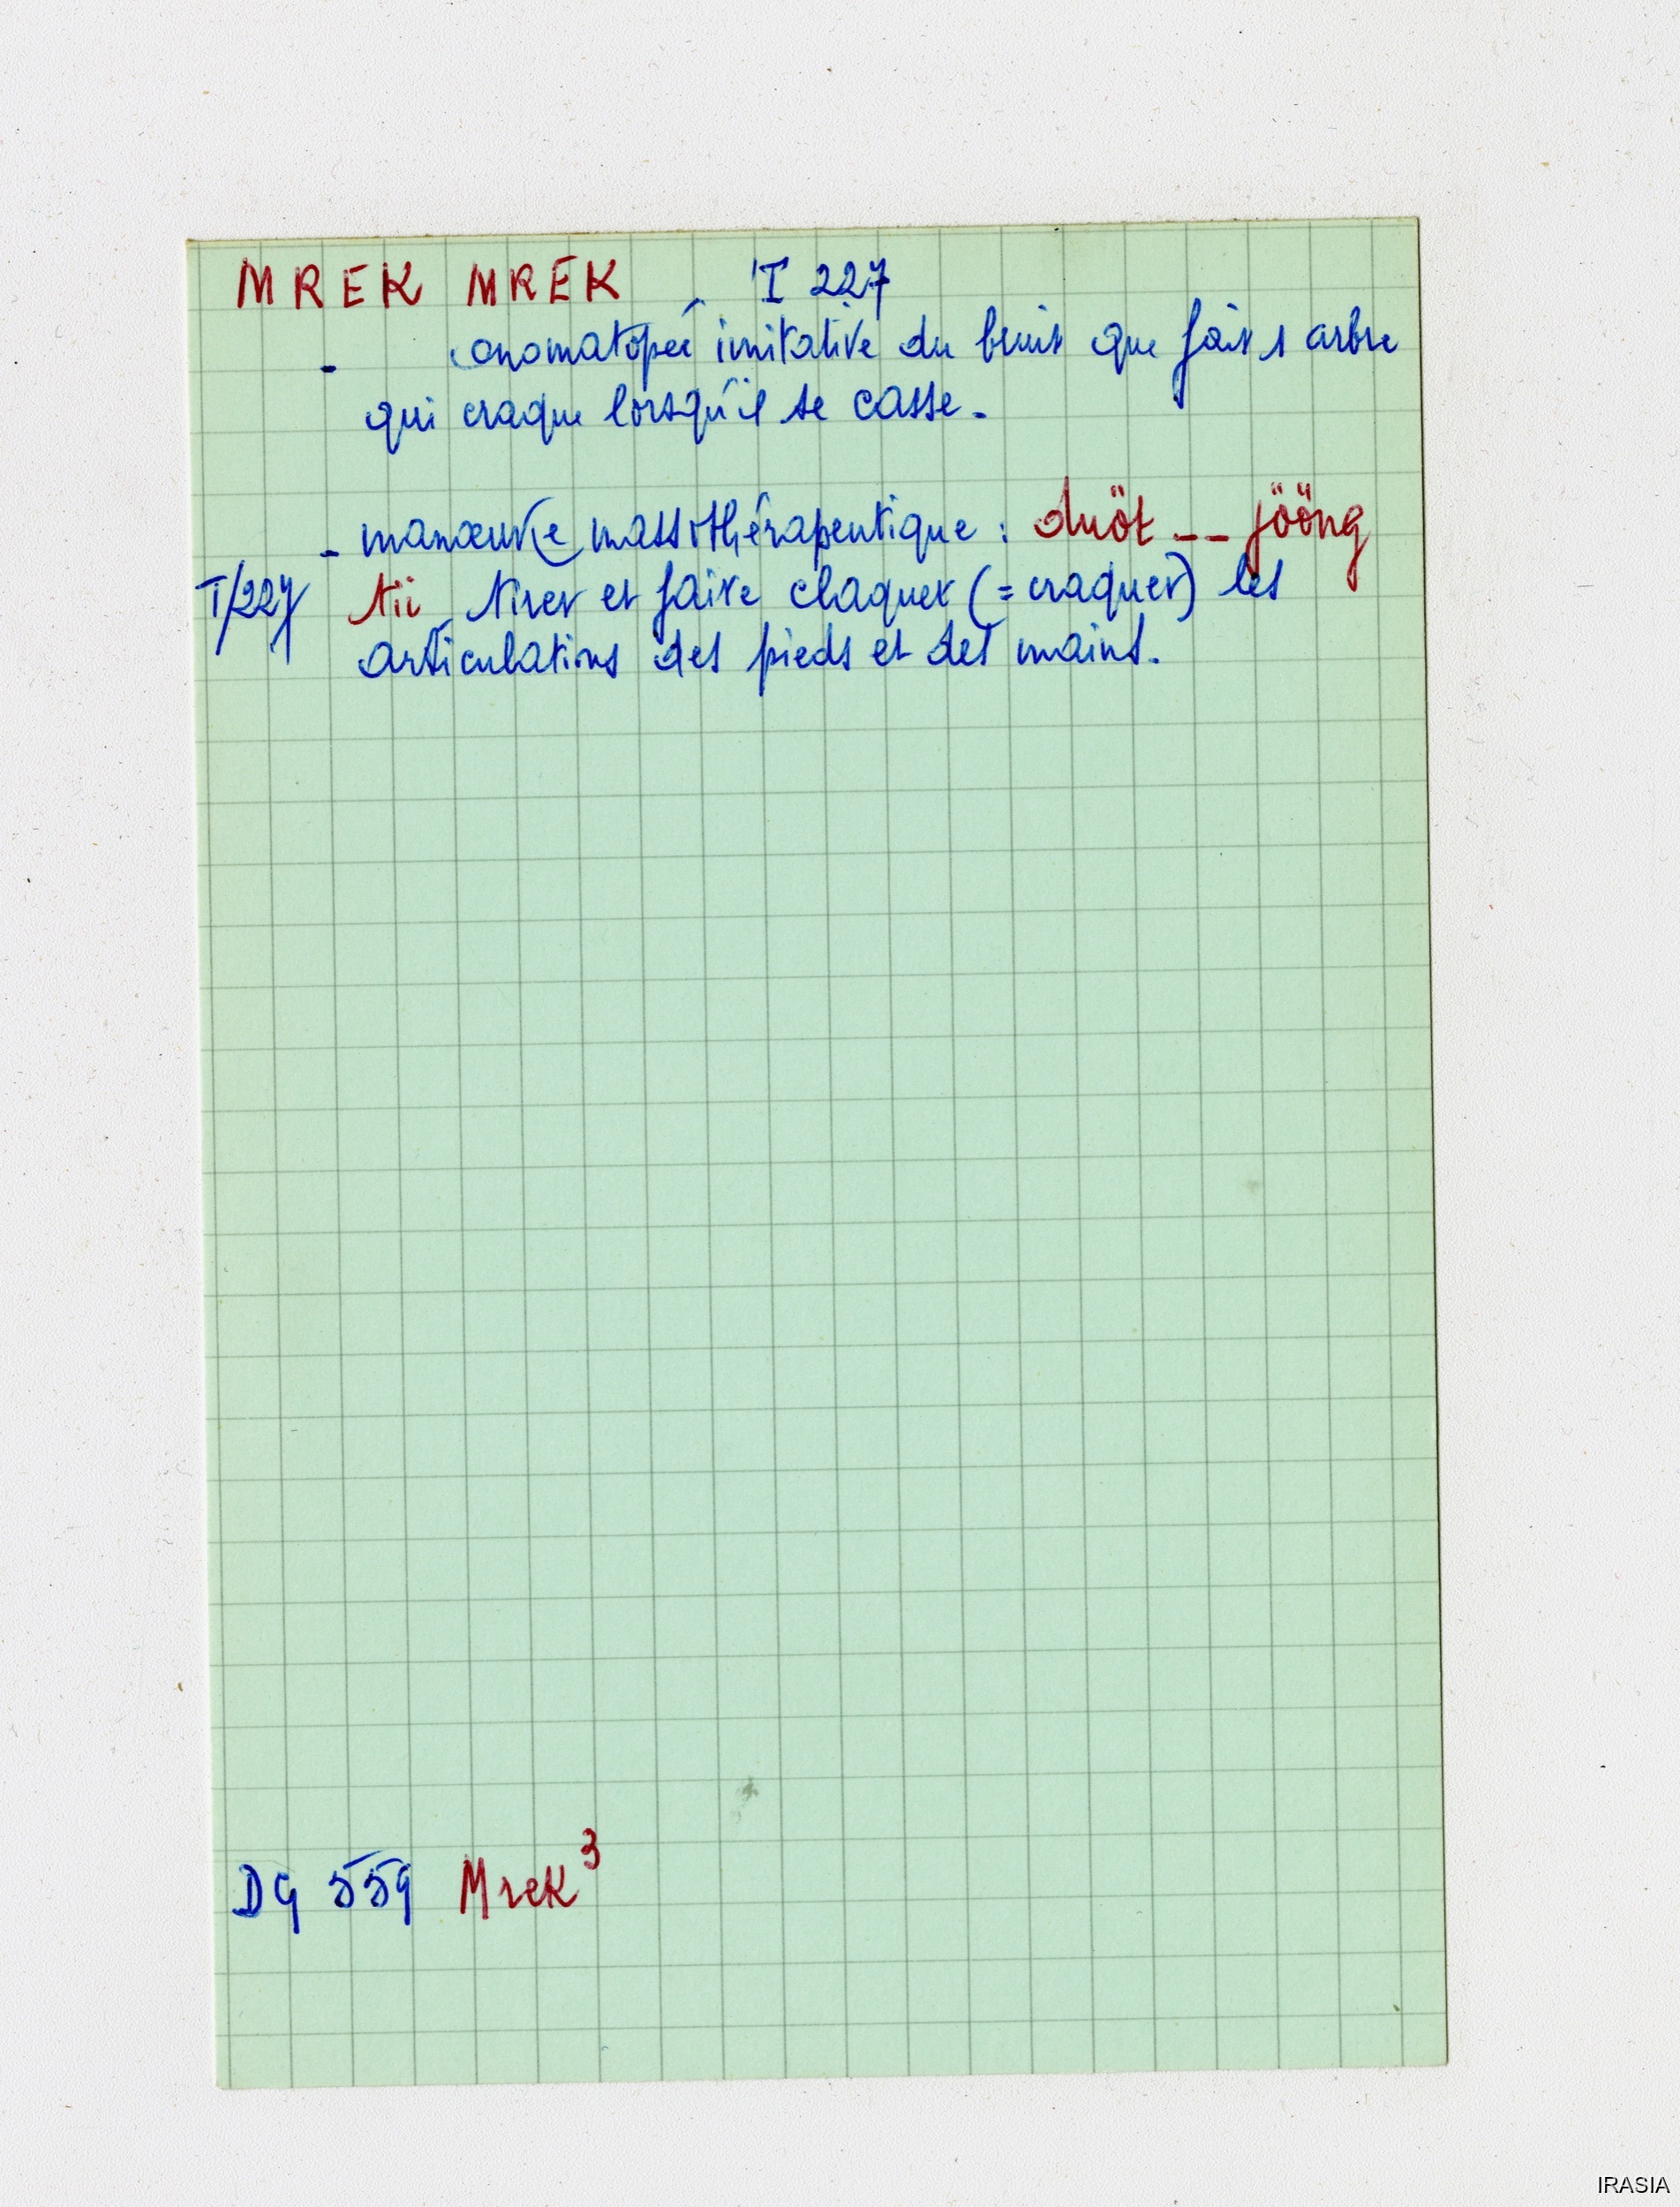 MREK MREK T 227
- onomatopée imitative du bruit que fait 1 arbre
qui craque lorsqu'il se casse.
- manœuvre massothérapeutique : duöt -- jööng
T/227 tii tirer et faire claquer (= craquer) les
articulations des pieds et des mains.
DG 559 Mrek³
IRASIA